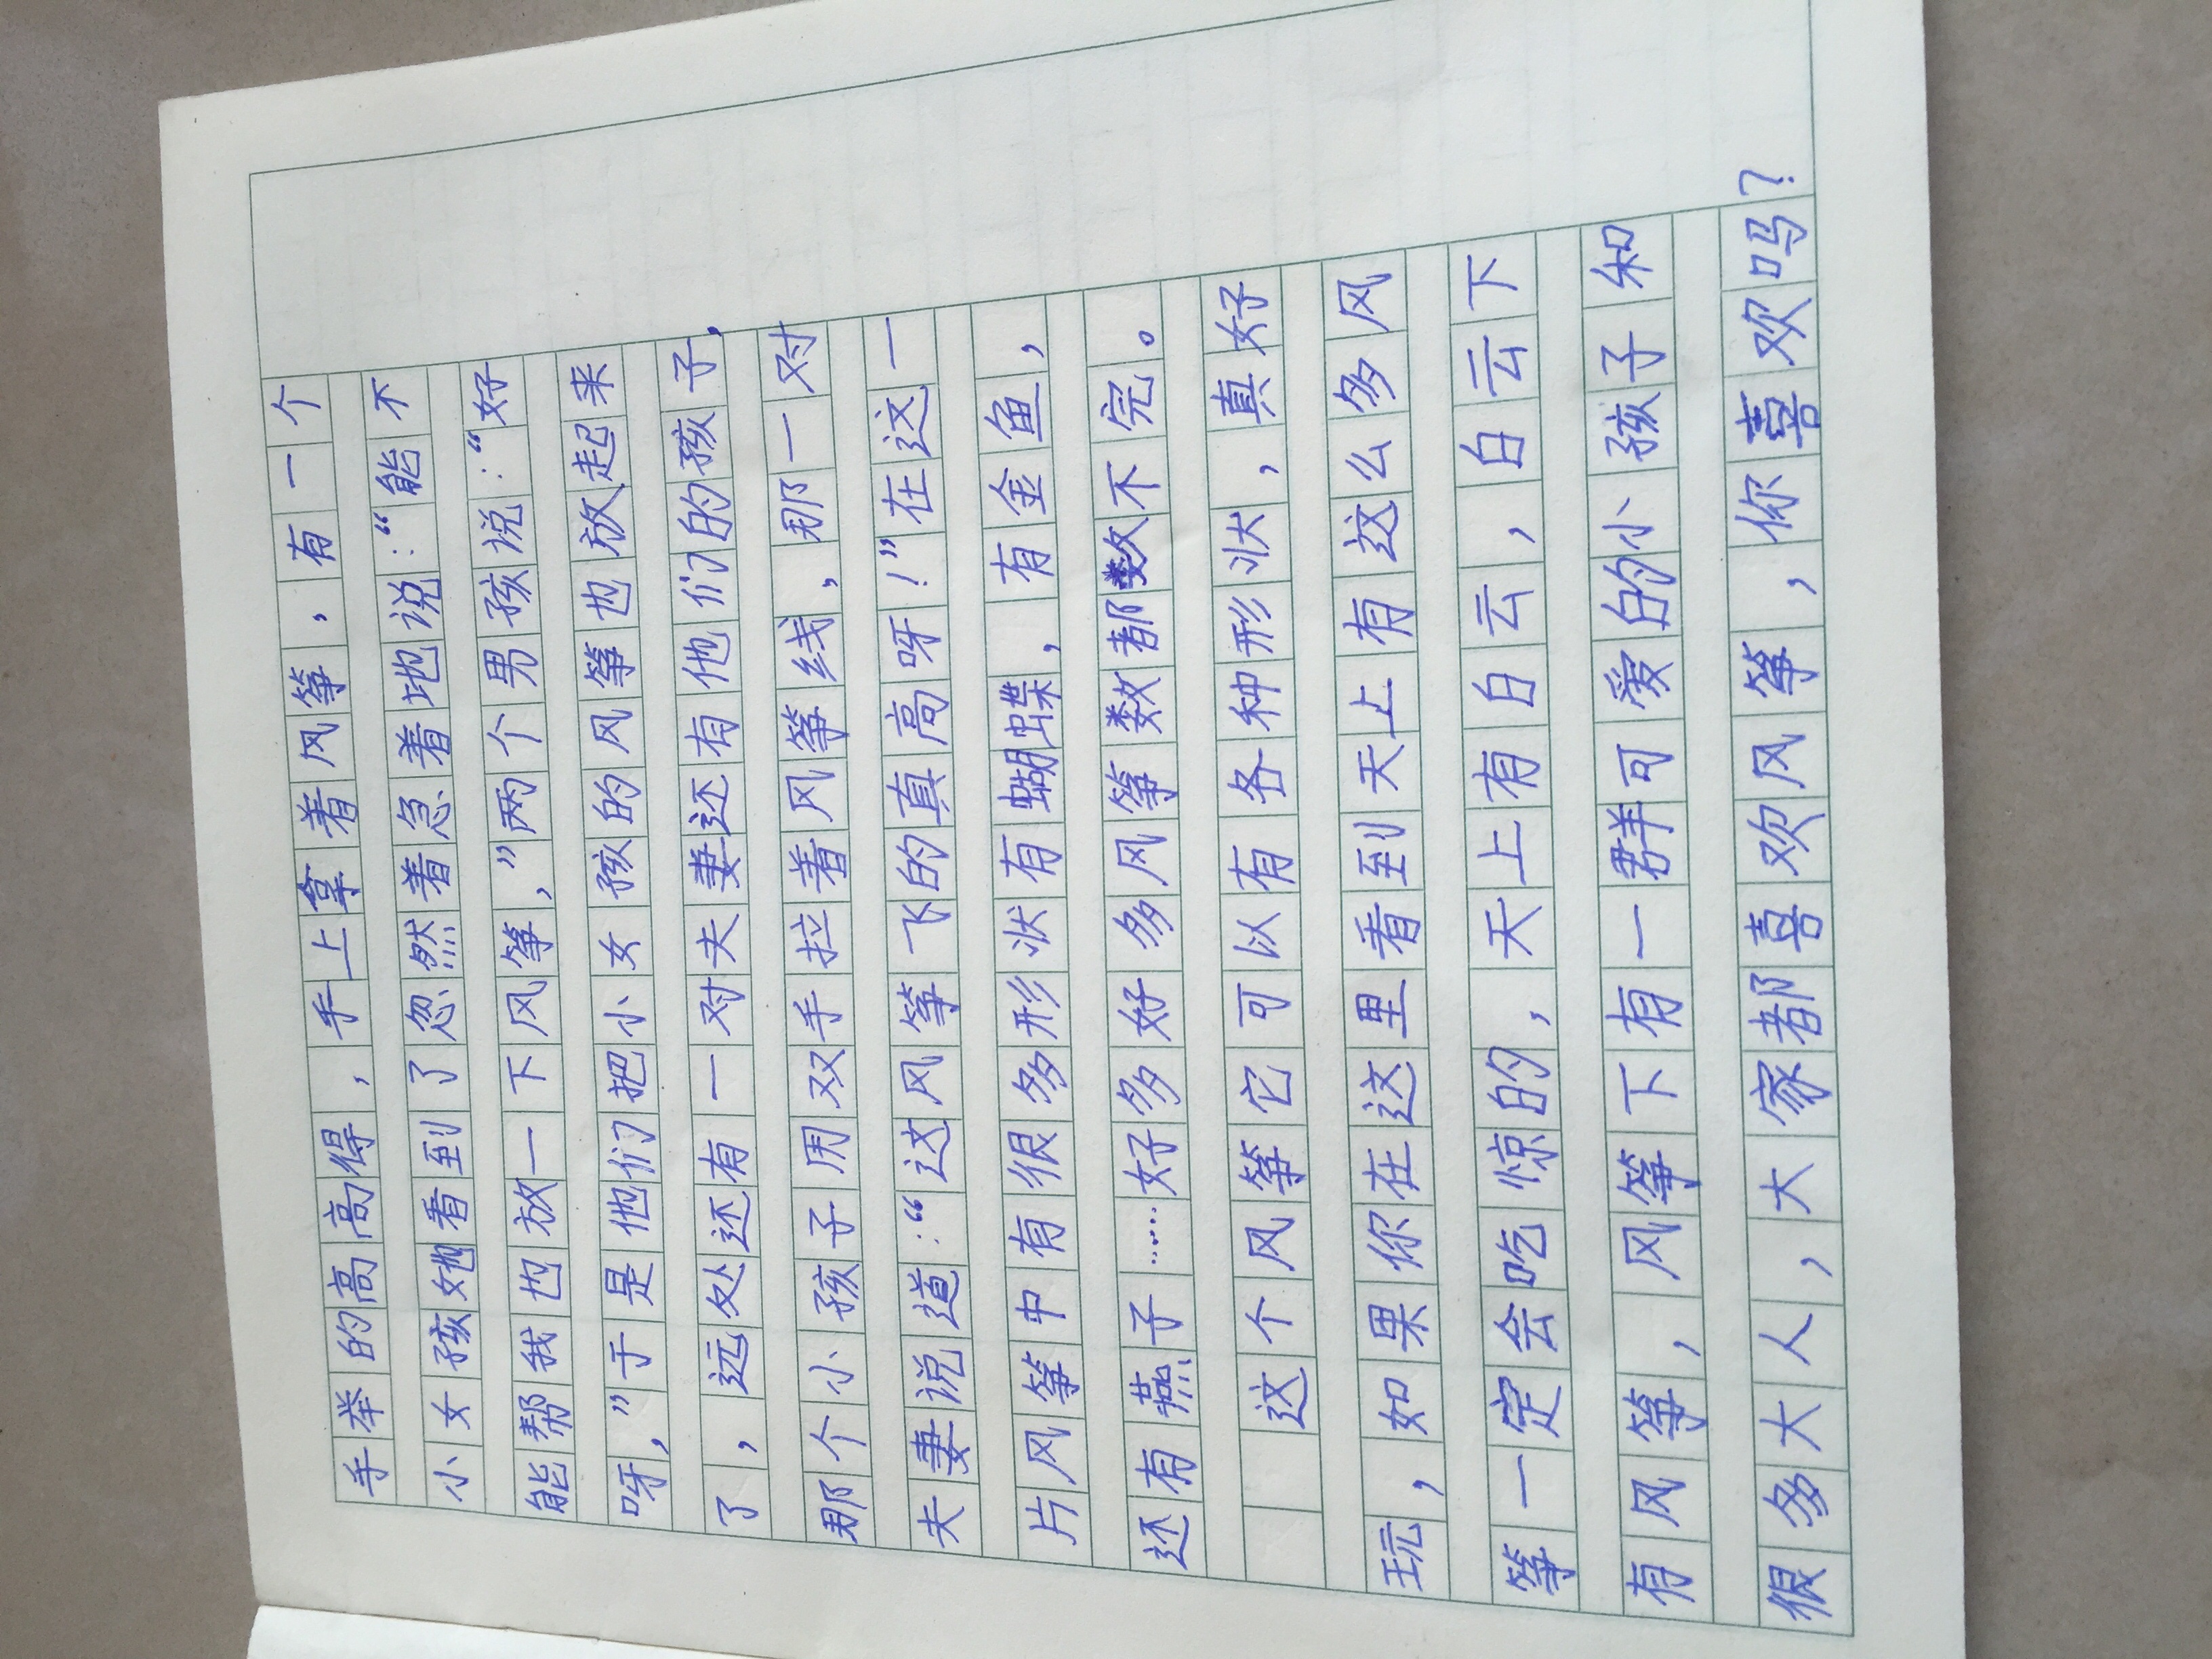 手举的高高得,手上拿着风筝,有一个
小女孩她看到了忽然着急着地说:“能不
能帮我也放一下风筝,”两个男孩说:“好
呀,”于是他们把小女孩的风筝也放起来
了,远处还有一对夫妻还有他们的孩子,
那个小孩子用双手拉着风筝线,那一对
夫妻说道:“这风筝飞的真高呀!”在这一
片风筝中有很多形状有蝴蝶,有金鱼,
还有燕子……好多好多风筝数都数不完。
这个风筝它可以有各种形状,真好
玩,如果你在这里看到天上有这么多风
筝一定会吃惊的,天上有白云,白云下
有风筝,风筝下有一群可爱的小孩子和
很多大人,大家都喜欢风筝,你喜欢吗?